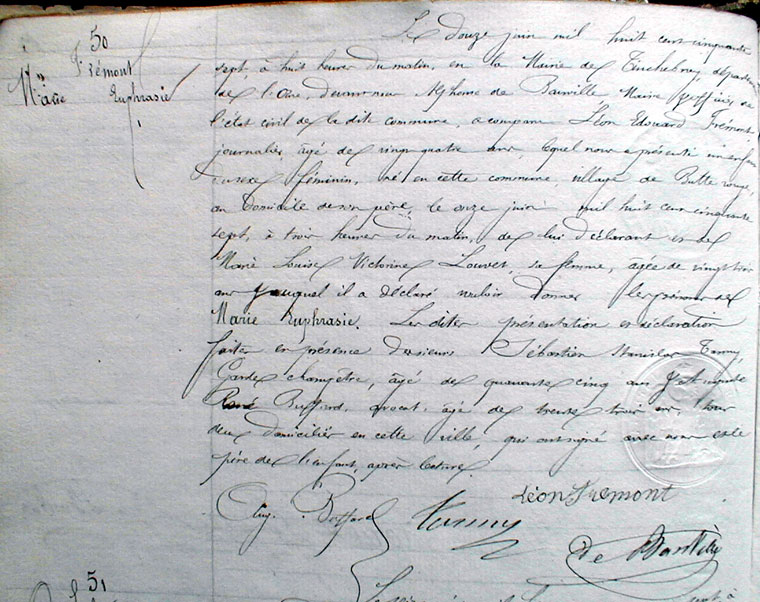 50
Frémont
Marie Euphrasie
Le douze juin mil huit cent cinquante
sept, à huit heures du matin, en la Mairie de Tinchebray département
de l'Orne, devant nous Alphonse de Maire officier de
l'état civil de la dite commune, a comparu Léon Edouard Frémont
journalier, âgé de vingt quatre ans, lequel nous a présenté un enfant
du sexe féminin, né en cette commune, village de Butte rouge,
au domicile de son père, le onze juin mil huit cent cinquante
sept, à trois heures du matin, de lui déclarant et de
Marie Louise Victorine Louvet, sa femme, âgée de vingt trois
ans auquel il a déclaré vouloir donner les prénoms de
Marie Euphrasie. Les dites présentation et déclaration
faites en présence des sieurs Sébastien Stanislas
Garde champêtre, âgé de quarante cinq ans et
avocat, âgé de trente trois ans, tous
deux domiciliés en cette ville, qui ont signé avec nous et le
père de l'enfant, après lecture.
Léon Fremont
Aug.
de
51